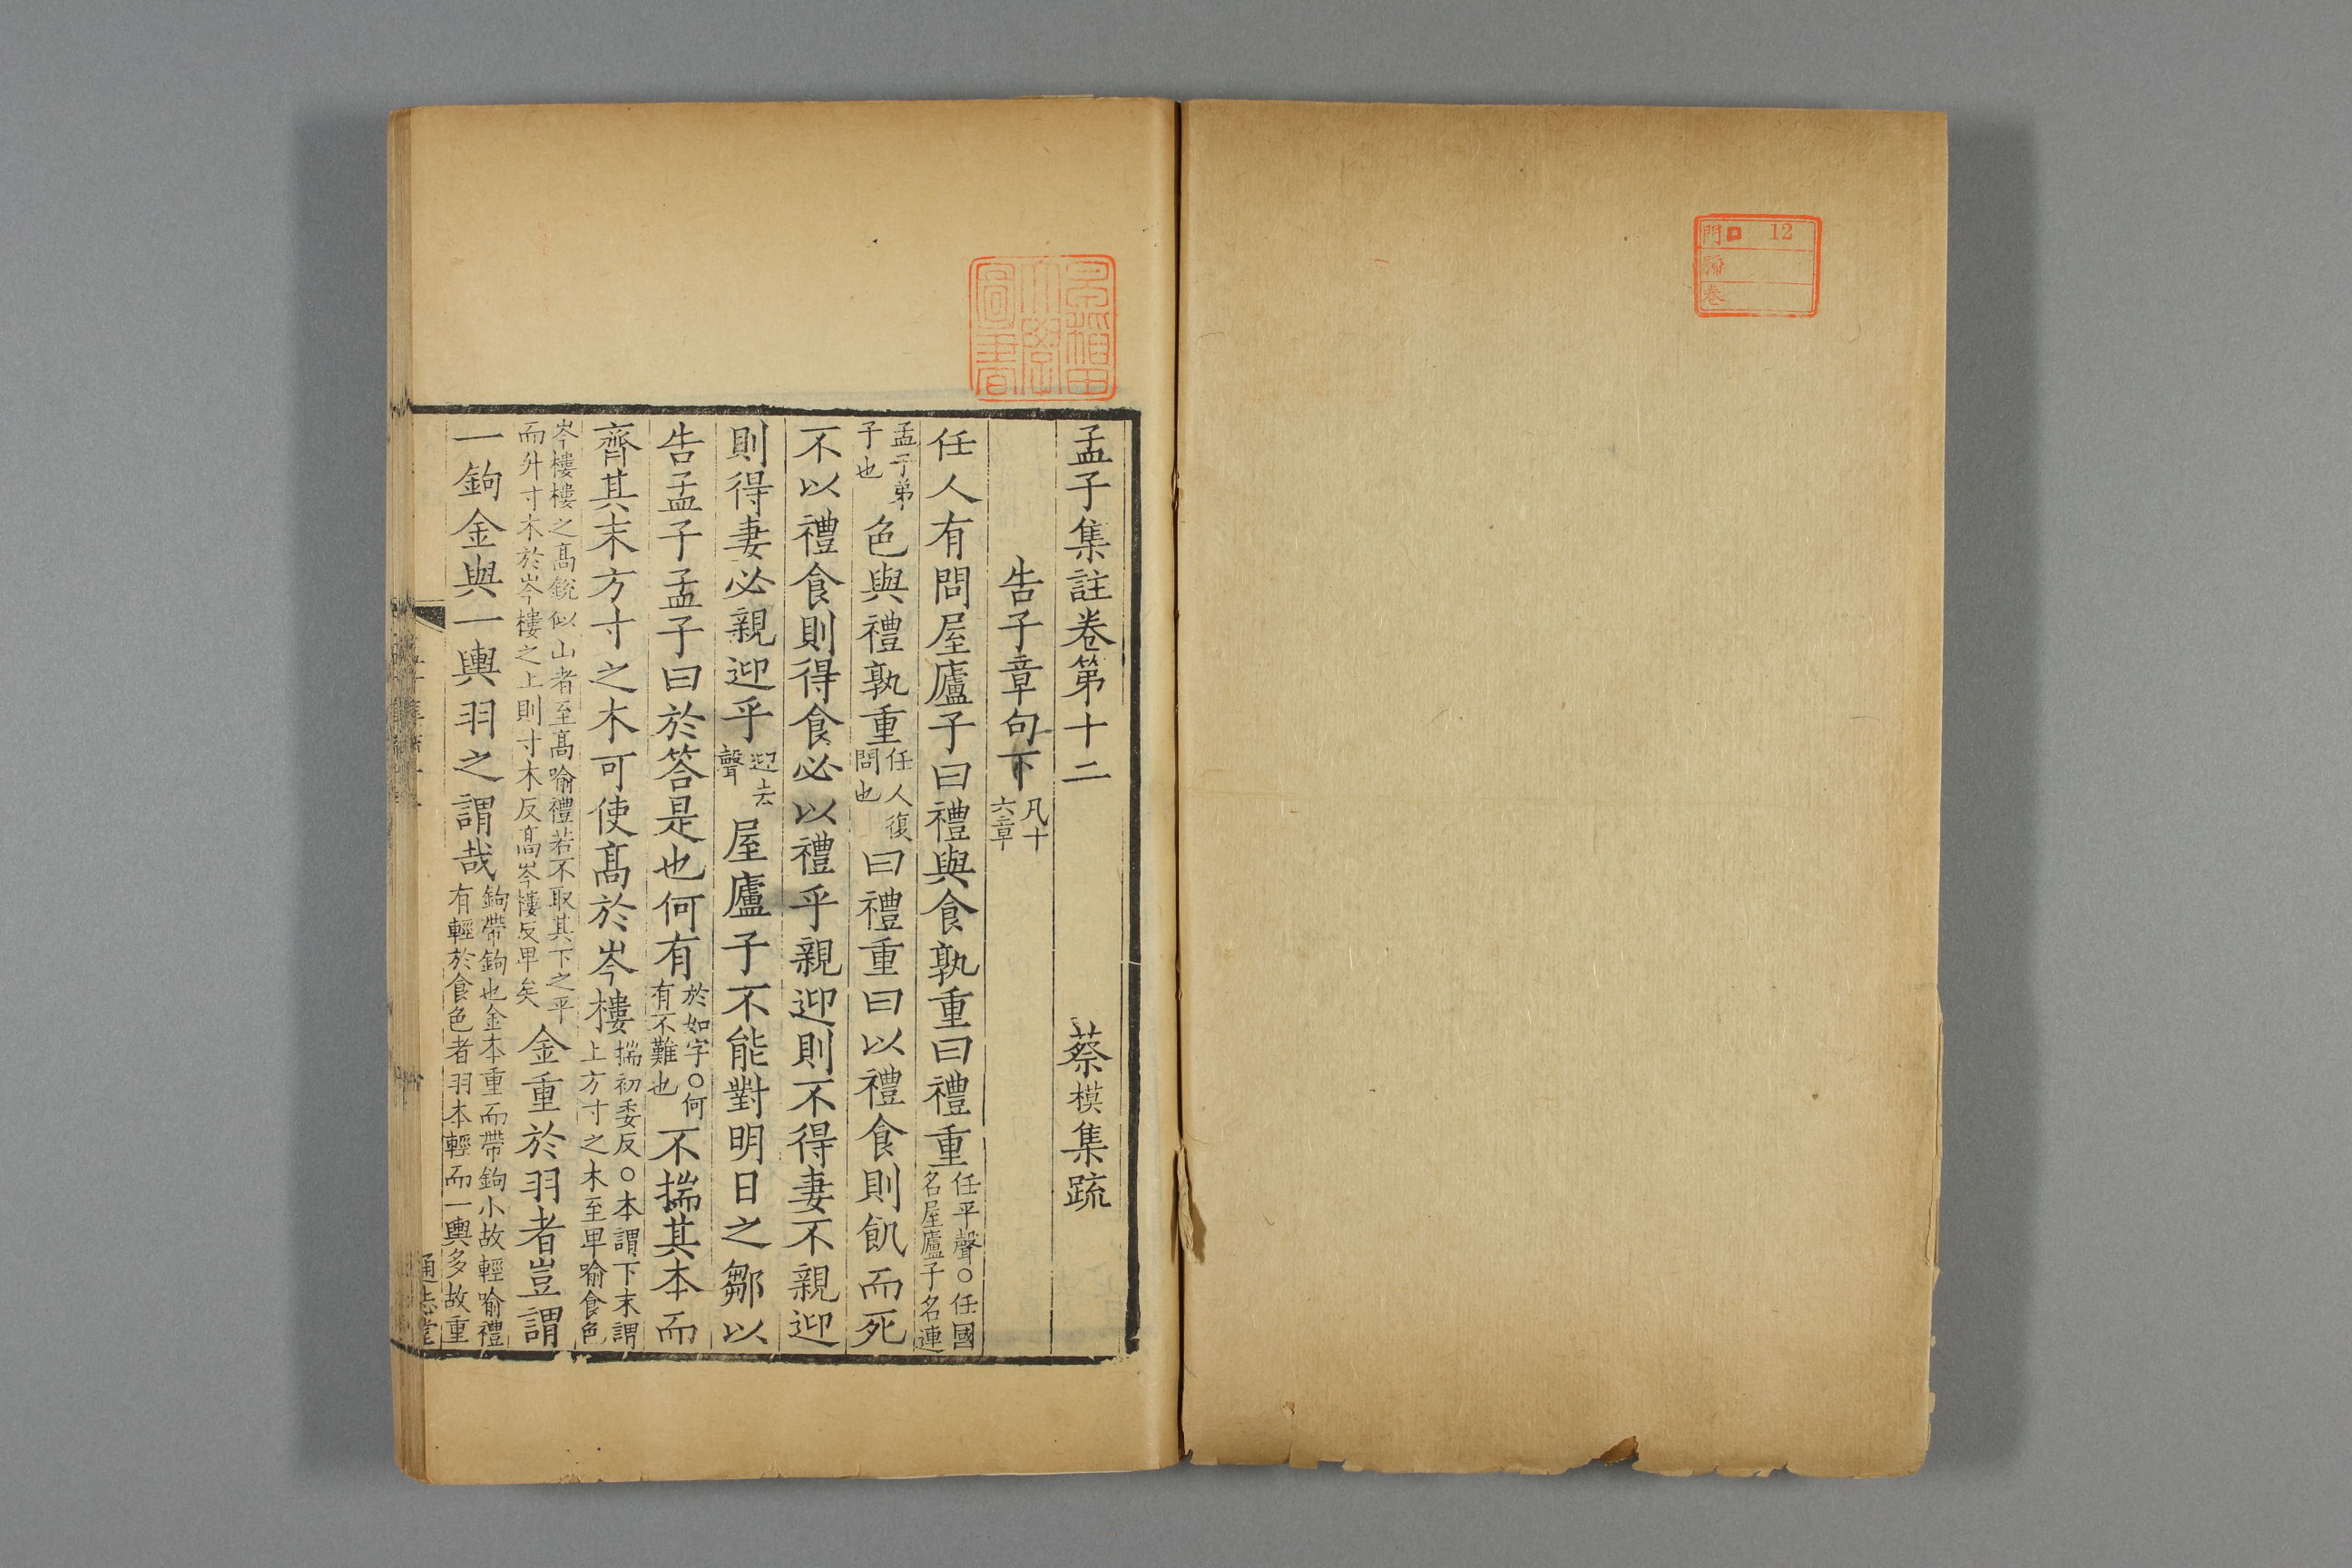 門 12
號
卷
早稻田大學圖書
孟子集註卷第十二 蔡模集疏
告子章句下凡十六章
任人有問屋廬子曰禮與食孰重曰禮重任平聲○任國名屋廬子名連
孟子弟子也色與禮孰重任人復問也曰禮重曰以禮食則飢而死
不以禮食則得食必以禮乎親迎則不得妻不親迎
則得妻必親迎乎迎去聲屋廬子不能對明日之鄒以
告孟子孟子曰於答是也何有於如字○何有不難也不揣其本而
齊其末方寸之木可使髙於岑樓揣初委反○本謂下末謂上方寸之木至卑喻食色
岑樓樓之髙銳似山者至髙喻禮若不取其下之平而升寸木於岑樓之上則寸木反髙岑樓反卑矣金重於羽者豈謂
一鉤金與一輿羽之謂哉鉤帶鉤也金本重而帶鉤小故輕喻禮有輕於食色者羽本輕而一輿多故重
通志堂